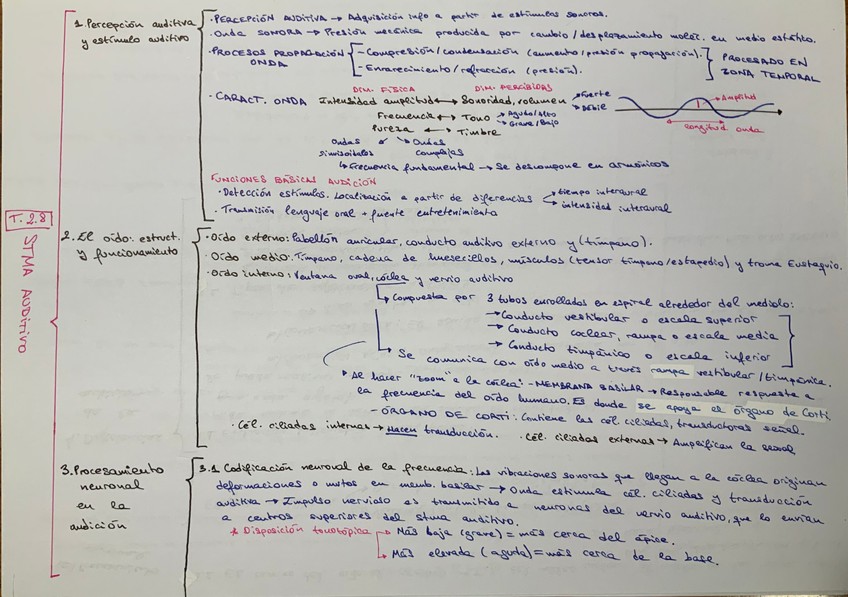 T. 2.8
STMA AUDITIVO
1. Percepción auditiva
y estímulo auditivo
· PERCEPCIÓN AUDITIVA → Adquisición info a partir de estímulos sonoros.
· Onda SONORA → Presión mecánica producida por cambio/desplazamiento moléc. en medio estático.
· PROCESOS PROPAGACIÓN ONDA
- Compresión/condensación (aumento/presión propagación).
- Enrarecimiento/refracción (presión).
PROCESADO EN
ZONA TEMPORAL
DIM. FÍSICA DIM. PERCIBIDAS
· CARACT. ONDA Intensidad amplitud ↔ Sonoridad, volumen → Fuerte
→ Débil
Frecuencia ↔ Tono → Agudo/Alto
→ Grave/Bajo
Pureza ↔ Timbre
Amplitud
Longitud onda
Ondas sinusoidales
Ondas complejas
↳ Frecuencia fundamental → Se descompone en armónicos
FUNCIONES BÁSICAS AUDICIÓN
· Detección estímulos. Localización a partir de diferencias → tiempo interaural
→ intensidad interaural
· Transmisión lenguaje oral + fuente entretenimiento
2. El oído: estruct.
y funcionamiento
· Oído externo: Pabellón auricular, conducto auditivo externo y (tímpano).
· Oído medio: Tímpano, cadena de huesecillos, músculos (tensor tímpano/estapedio) y trompa Eustaquio.
· Oído interno: Ventana oval, cóclea y nervio auditivo
↳ Compuesta por 3 tubos enrollados en espiral alrededor del mediolo:
→ Conducto vestibular o escala superior
→ Conducto coclear, rampa o escala media
→ Conducto timpánico o escala inferior
↳ Se comunica con oído medio a través rampa vestibular/timpánica.
Al hacer "zoom" a la cóclea: - MEMBRANA BASILAR → Responsable respuesta a
la frecuencia del oído humano. Es donde se apoya el órgano de Corti
- ÓRGANO DE CORTI: Contiene las cél. ciliadas, transductoras señal.
· Cél. ciliadas internas → Hacen transducción. · Cél. ciliadas externas → Amplifican la señal
3. Procesamiento
neuronal
en la
audición
3.1 Codificación neuronal de la frecuencia: Las vibraciones sonoras que llegan a la cóclea originan
deformaciones o motos en memb. basilar → Onda estimula cél. ciliadas y transducción
auditiva → Impulso nervioso es transmitido a neuronas del nervio auditivo, que lo envían
a centros superiores del stma auditivo.
* Disposición tonotópica → Más baja (grave) = más cerca del ápice.
→ Más elevada (aguda) = más cerca de la base.